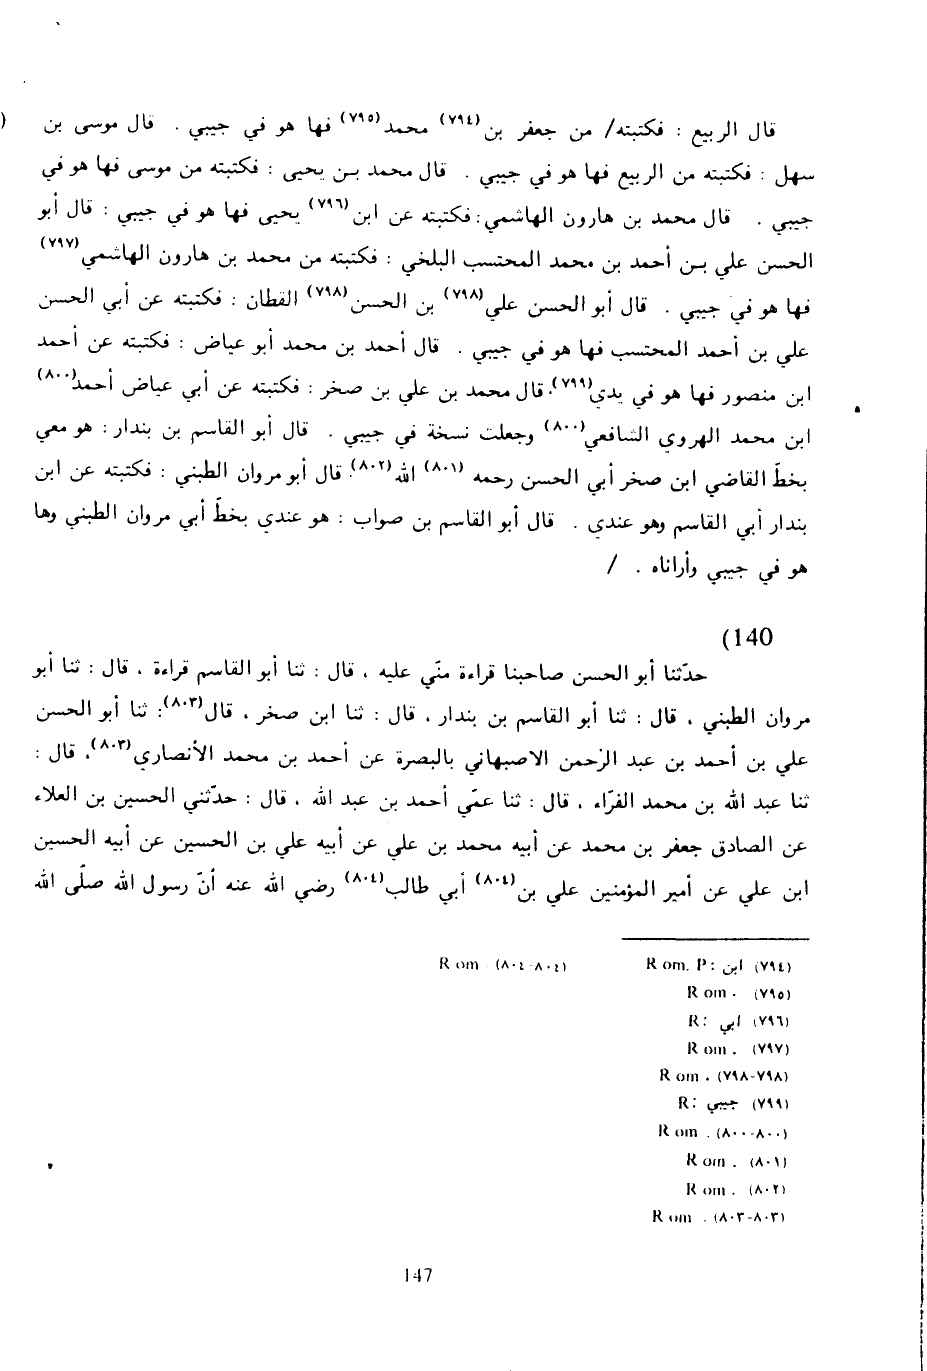 قال الربيع : فكتبته/ من جعفر بن(٧٩٤) محمد(٧٩٥) فها هو في جيبي . قال موسى بن
سهل : فكتبته من الربيع فها هو في جيبي . قال محمد بن يحيى : فكتبته من موسى فها هو في
جيبي . قال محمد بن هارون الهاشمي : فكتبته عن ابن(٧٩٦) يحيى فها هو في جيبي : قال أبو
الحسن علي بن أحمد بن محمد المحتسب البلخي : فكتبته من محمد بن هارون الهاشمي(٧٩٧)
فها هو في جيبي . قال أبو الحسن علي(٧٩٨) بن الحسن(٧٩٨) القطان : فكتبته عن أبي الحسن
علي بن أحمد المحتسب فها هو في جيبي . قال أحمد بن محمد أبو عياض : فكتبته عن أحمد
ابن منصور فها هو في يدي(٧٩٩). قال محمد بن علي بن صخر : فكتبته عن أبي عياض أحمد(٨٠٠)
ابن محمد الهروي الشافعي(٨٠٠) وجعلت نسخة في جيبي . قال أبو القاسم بن بندار : هو معي
بخطّ القاضي ابن صخر أبي الحسن رحمه (٨٠١) الله(٨٠٢). قال أبو مروان الطبني : فكتبته عن ابن
بندار أبي القاسم وهو عندي . قال أبو القاسم بن صواب : هو عندي بخطّ أبي مروان الطبني وها
هو في جيبي وأراناه . /
(140
حدّثنا أبو الحسن صاحبنا قراءة منّي عليه ، قال : ثنا أبو القاسم قراءة ، قال : ثنا أبو
مروان الطبني ، قال : ثنا أبو القاسم بن بندار ، قال : ثنا ابن صخر ، قال(٨٠٣): ثنا أبو الحسن
علي بن أحمد بن عبد الرحمن الاصبهاني بالبصرة عن أحمد بن محمد الأنصاري(٨٠٣)، قال :
ثنا عبد الله بن محمد الفرّاء ، قال : ثنا عمّي أحمد بن عبد الله ، قال : حدّثني الحسين بن العلاء
عن الصادق جعفر بن محمد عن أبيه محمد بن علي عن أبيه علي بن الحسين عن أبيه الحسين
ابن علي عن أمير المؤمنين علي بن(٨٠٤) أبي طالب(٨٠٤) رضي الله عنه أنّ رسول الله صلّى الله
(٧٩٤) ابن :R om. P
(٧٩٥) . R om
(٧٩٦) ابي :R
(٧٩٧) . R om
(٧٩٨-٧٩٨) . R om
(٧٩٩) جيبي :R
(٨٠٠-٨٠٠) . R om
(٨٠١) . R om
(٨٠٢) . R om
(٨٠٣-٨٠٣) . R om
(٨٠٤-٨٠٤) . R om
147